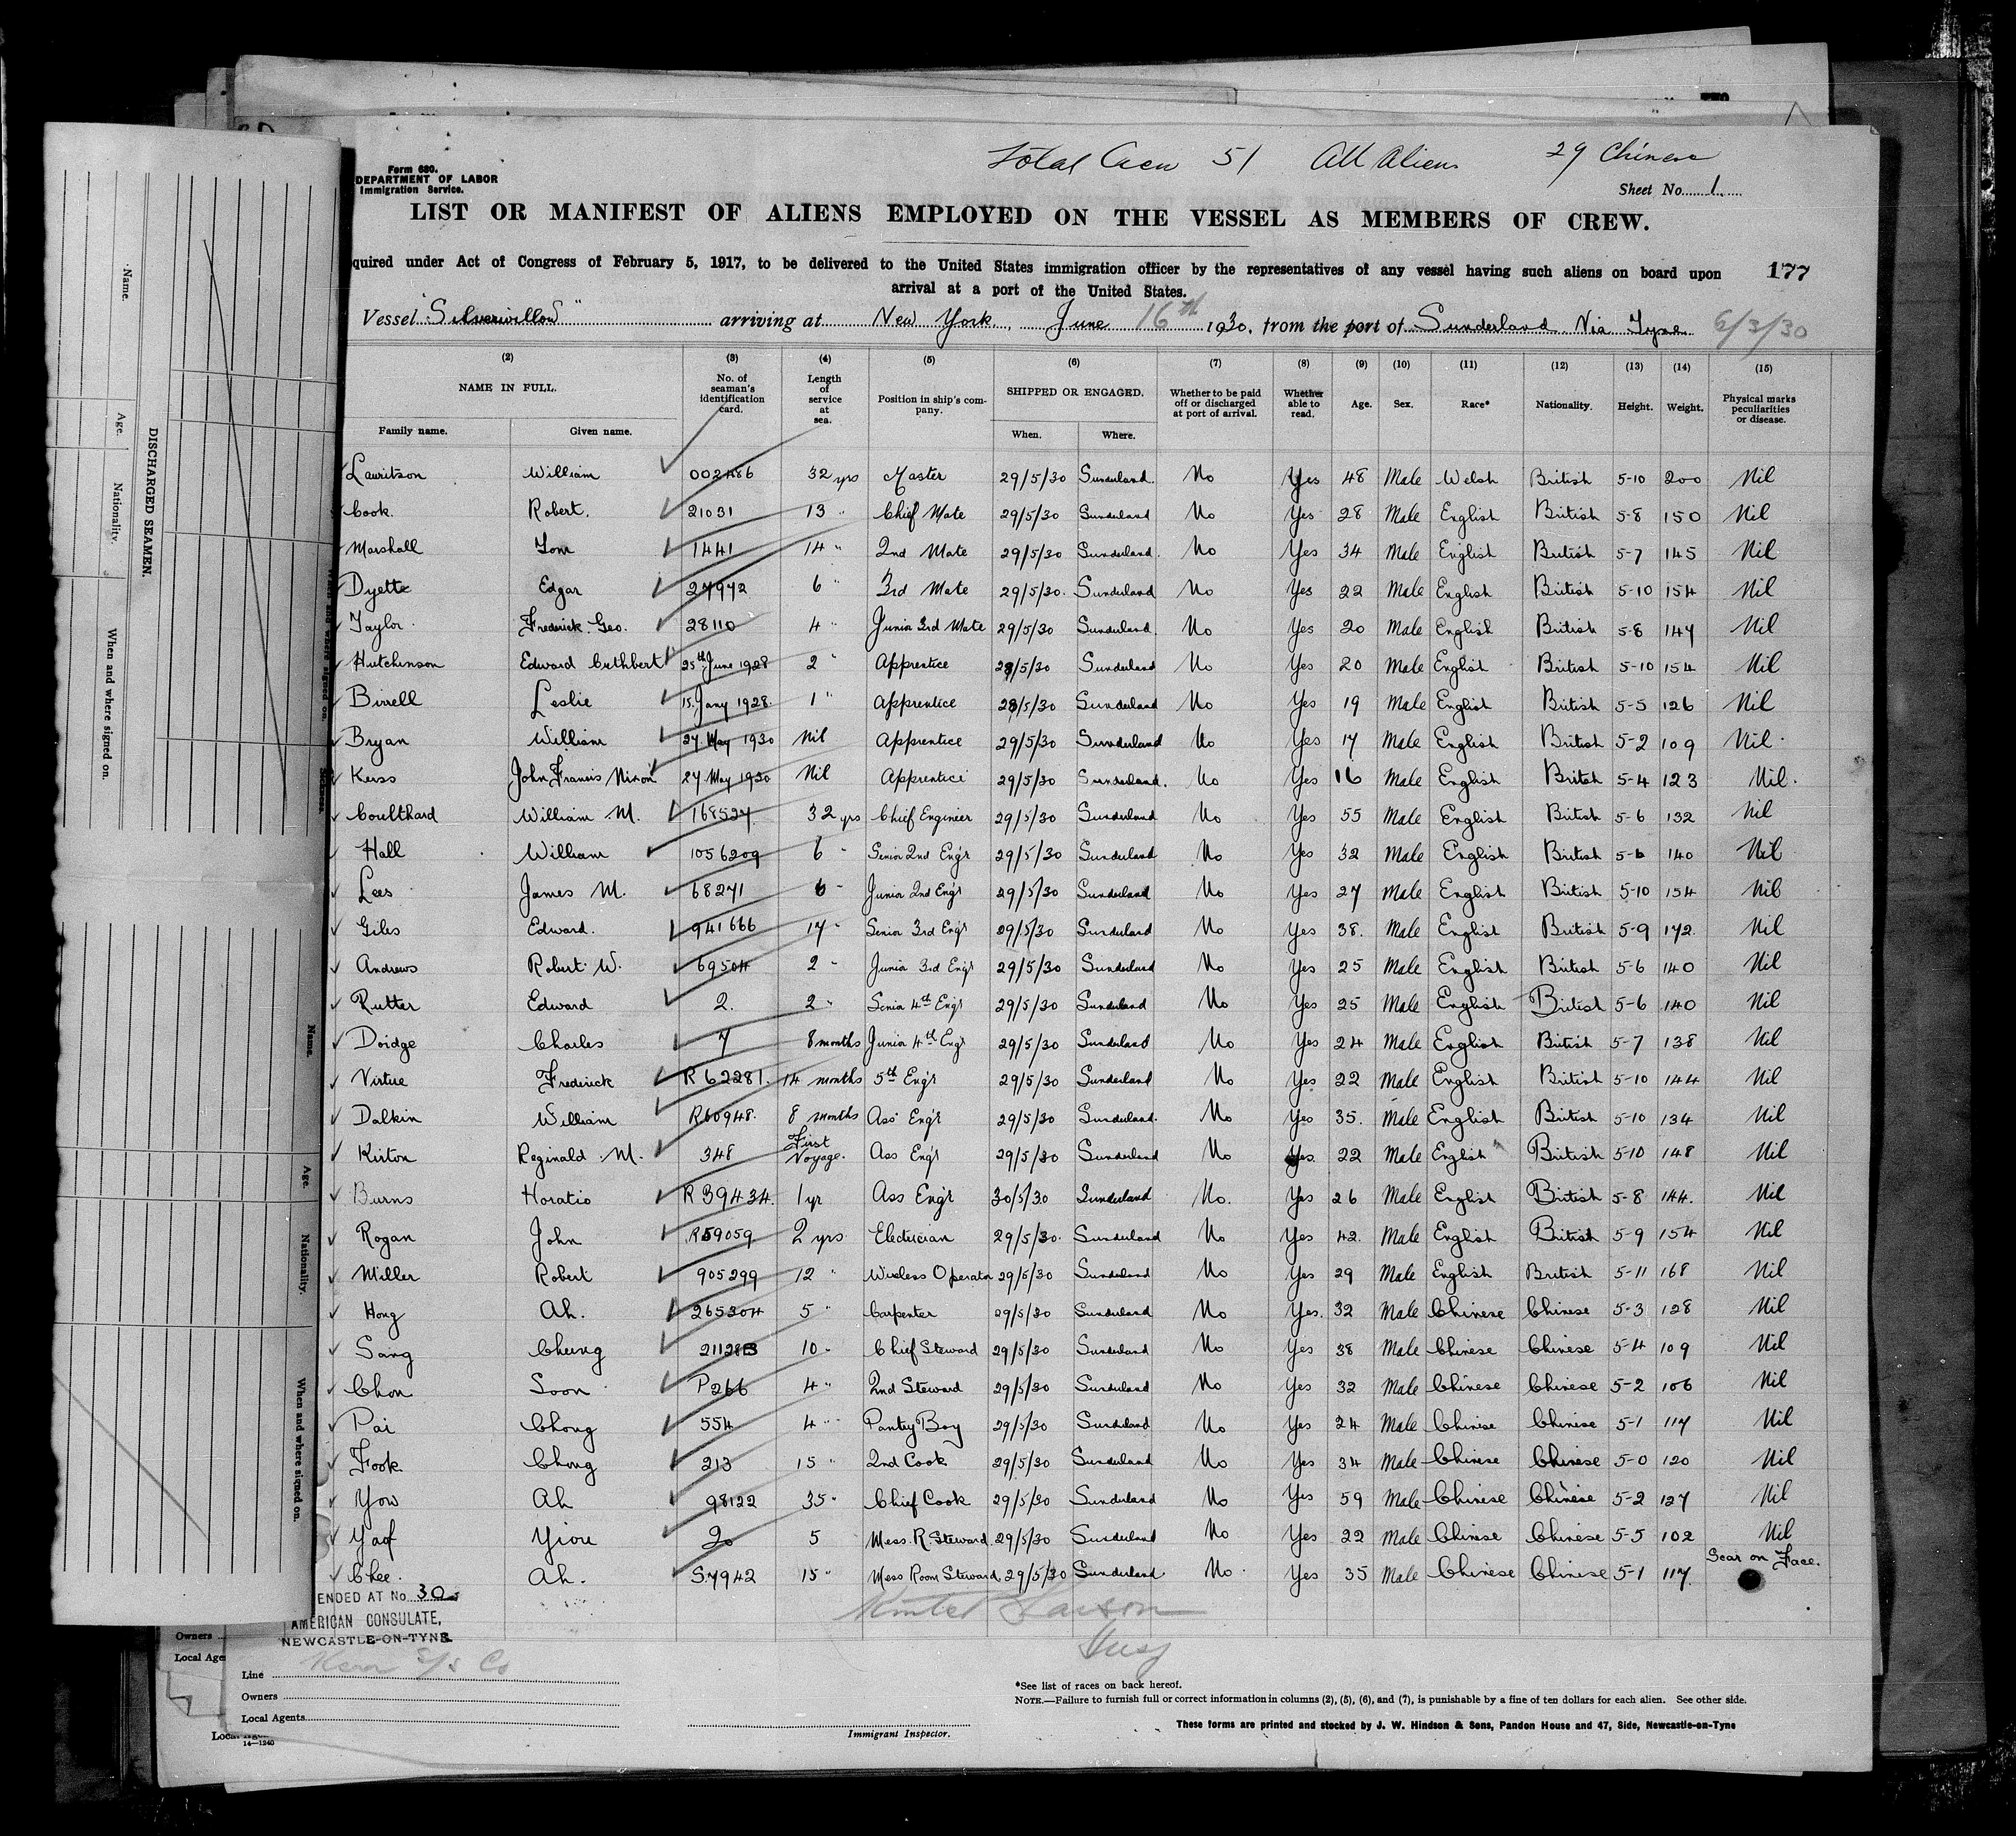 Total Crew 51 All Aliens 29 Chinese
Form 680.
DEPARTMENT OF LABOR
Immigration Service.
Sheet No. 1.
LIST OR MANIFEST OF ALIENS EMPLOYED ON THE VESSEL AS MEMBERS OF CREW.
quired under Act of Congress of February 5, 1917, to be delivered to the United States immigration officer by the representatives of any vessel having such aliens on board upon
arrival at a port of the United States.
177
Vessel "Silverwillow" arriving at New York, June 16th 1930, from the port of Sunderland Via Tyne 6/3/30
(2) (3) (4) (5) (6) (7) (8) (9) (10) (11) (12) (13) (14) (15)
NAME IN FULL. No. of seaman's identification card. Length of service at sea. Position in ship's company. SHIPPED OR ENGAGED. Whether to be paid off or discharged at port of arrival. Whether able to read. Age. Sex. Race* Nationality. Height. Weight. Physical marks peculiarities or disease.
Family name. Given name. When. Where.
Lauritson William 002486 32 yrs Master 29/5/30 Sunderland. No Yes 48 Male Welsh British 5-10 200 Nil
Cook. Robert. 21031 13 " Chief Mate 29/5/30 Sunderland No Yes 28 Male English British 5-8 150 Nil
Marshall Tom 1441 14 " 2nd Mate 29/5/30 Sunderland. No Yes 34 Male English British 5-7 145 Nil
Dyette Edgar 27972 6 " 3rd Mate 29/5/30. Sunderland No Yes 22 Male English British 5-10 154 Nil
Taylor. Frederick. Geo. 28110 4 " Junior 3rd Mate 29/5/30 Sunderland. No Yes 20 Male English British 5-8 147 Nil
Hutchinson Edward Cuthbert 25th June 1928 2 " Apprentice 29/5/30 Sunderland No Yes 20 Male English British 5-10 154 Nil
Birrell Leslie 15. Jany 1928. 1 " Apprentice 29/5/30 Sunderland No Yes 19 Male English British 5-5 126 Nil
Bryan William 27 May 1930 Nil Apprentice 29/5/30 Sunderland No Yes 17 Male English British 5-2 109 Nil.
Kerss John Francis Nixon 27 May 1930 Nil Apprentice 29/5/30 Sunderland. No Yes 16 Male English British 5-4 123 Nil.
Coulthard William M. 168527. 32 yrs Chief Engineer 29/5/30 Sunderland No Yes 55 Male English British 5-6 132 Nil
Hall William 1056209 6 " Senior 2nd Eng'r 29/5/30 Sunderland No Yes 32 Male English British 5-6 140 Nil
Lees James M. 68271 6 " Junior 2nd Eng'r 29/5/30 Sunderland No Yes 27 Male English British 5-10 154 Nil
Giles Edward. 941666 17 " Senior 3rd Eng'r 29/5/30 Sunderland No Yes 38. Male English British 5-9 172. Nil
Andrews Robert W. 69504 2 " Junior 3rd Eng'r 29/5/30 Sunderland No Yes 25 Male English British 5-6 140 Nil
Rutter Edward 2. 2 " Senior 4th Eng'r 29/5/30 Sunderland No Yes 25 Male English British 5-6 140 Nil
Doidge Charles 7 8 months Junior 4th Eng'r 29/5/30 Sunderland No Yes 24 Male English British 5-7 138 Nil
Virtue Frederick R 62281. 14 months 5th Eng'r 29/5/30 Sunderland No Yes 22 Male English British 5-10 144 Nil
Dalkin William R60948. 8 months Ass Eng'r 29/5/30 Sunderland. No Yes 35. Male English British 5-10 134 Nil
Kirton Reginald M. 348 First Voyage. Ass Eng'r 29/5/30 Sunderland No Yes. 22 Male English British 5-10 148 Nil
Burns Horatio R 39434. 1 yr Ass Eng'r 30/5/30 Sunderland No. Yes 26 Male English British 5-8 144. Nil
Rogan John R59059 2 yrs Electrician 29/5/30. Sunderland No Yes 42. Male English British 5-9 154 Nil
Miller Robert 905299 12 " Wireless Operator 29/5/30 Sunderland No Yes 29 Male English British 5-11 168 Nil
Hong Ah. 265304 5 " Carpenter 29/5/30 Sunderland No Yes. 32 Male Chinese Chinese 5-3 128 Nil
Sang Cheung 10 " Chief Steward 29/5/30 Sunderland No Yes 38 Male Chinese Chinese 5-4 109 Nil
Chon Soon P266 4 " 2nd Steward 29/5/30 Sunderland No Yes 32 Male Chinese Chinese 5-2 106 Nil
Pai Chong 554 4 " Pantry Boy 29/5/30 Sunderland No Yes 24 Male Chinese Chinese 5-1 117 Nil
Fook Ching 213 15 " 2nd Cook 29/5/30 Sunderland No Yes 34 Male Chinese Chinese 5-0 120 Nil
Yow Ah 98122 35 " Chief Cook 29/5/30 Sunderland No Yes 59 Male Chinese Chinese 5-2 127 Nil
Yaof Yiou 20 5 Mess. R. Steward. 29/5/30 Sunderland No Yes 22 Male Chinese Chinese 5-5 102 Nil
Chee. Ah. S.7942 15 " Mess Room Steward. 29/5/30 Sunderland No. Yes 35 Male Chinese Chinese 5-1 117. Scar on Face.
ENDED AT No. 30
AMERICAN CONSULATE,
NEWCASTLE-ON-TYNE.
Kerr S/S Co
Line
Owners
Local Agents
Immigrant Inspector.
*See list of races on back hereof.
NOTE.—Failure to furnish full or correct information in columns (2), (5), (6), and (7), is punishable by a fine of ten dollars for each alien. See other side.
These forms are printed and stocked by J. W. Hindson & Sons, Pandon House and 47, Side, Newcastle-on-Tyne
14—1240
Owners
Local Age
DISCHARGED SEAMEN.
Name.
Age.
Nationality.
When and where signed on.
Name.
Age.
Nationality.
When and where signed on.